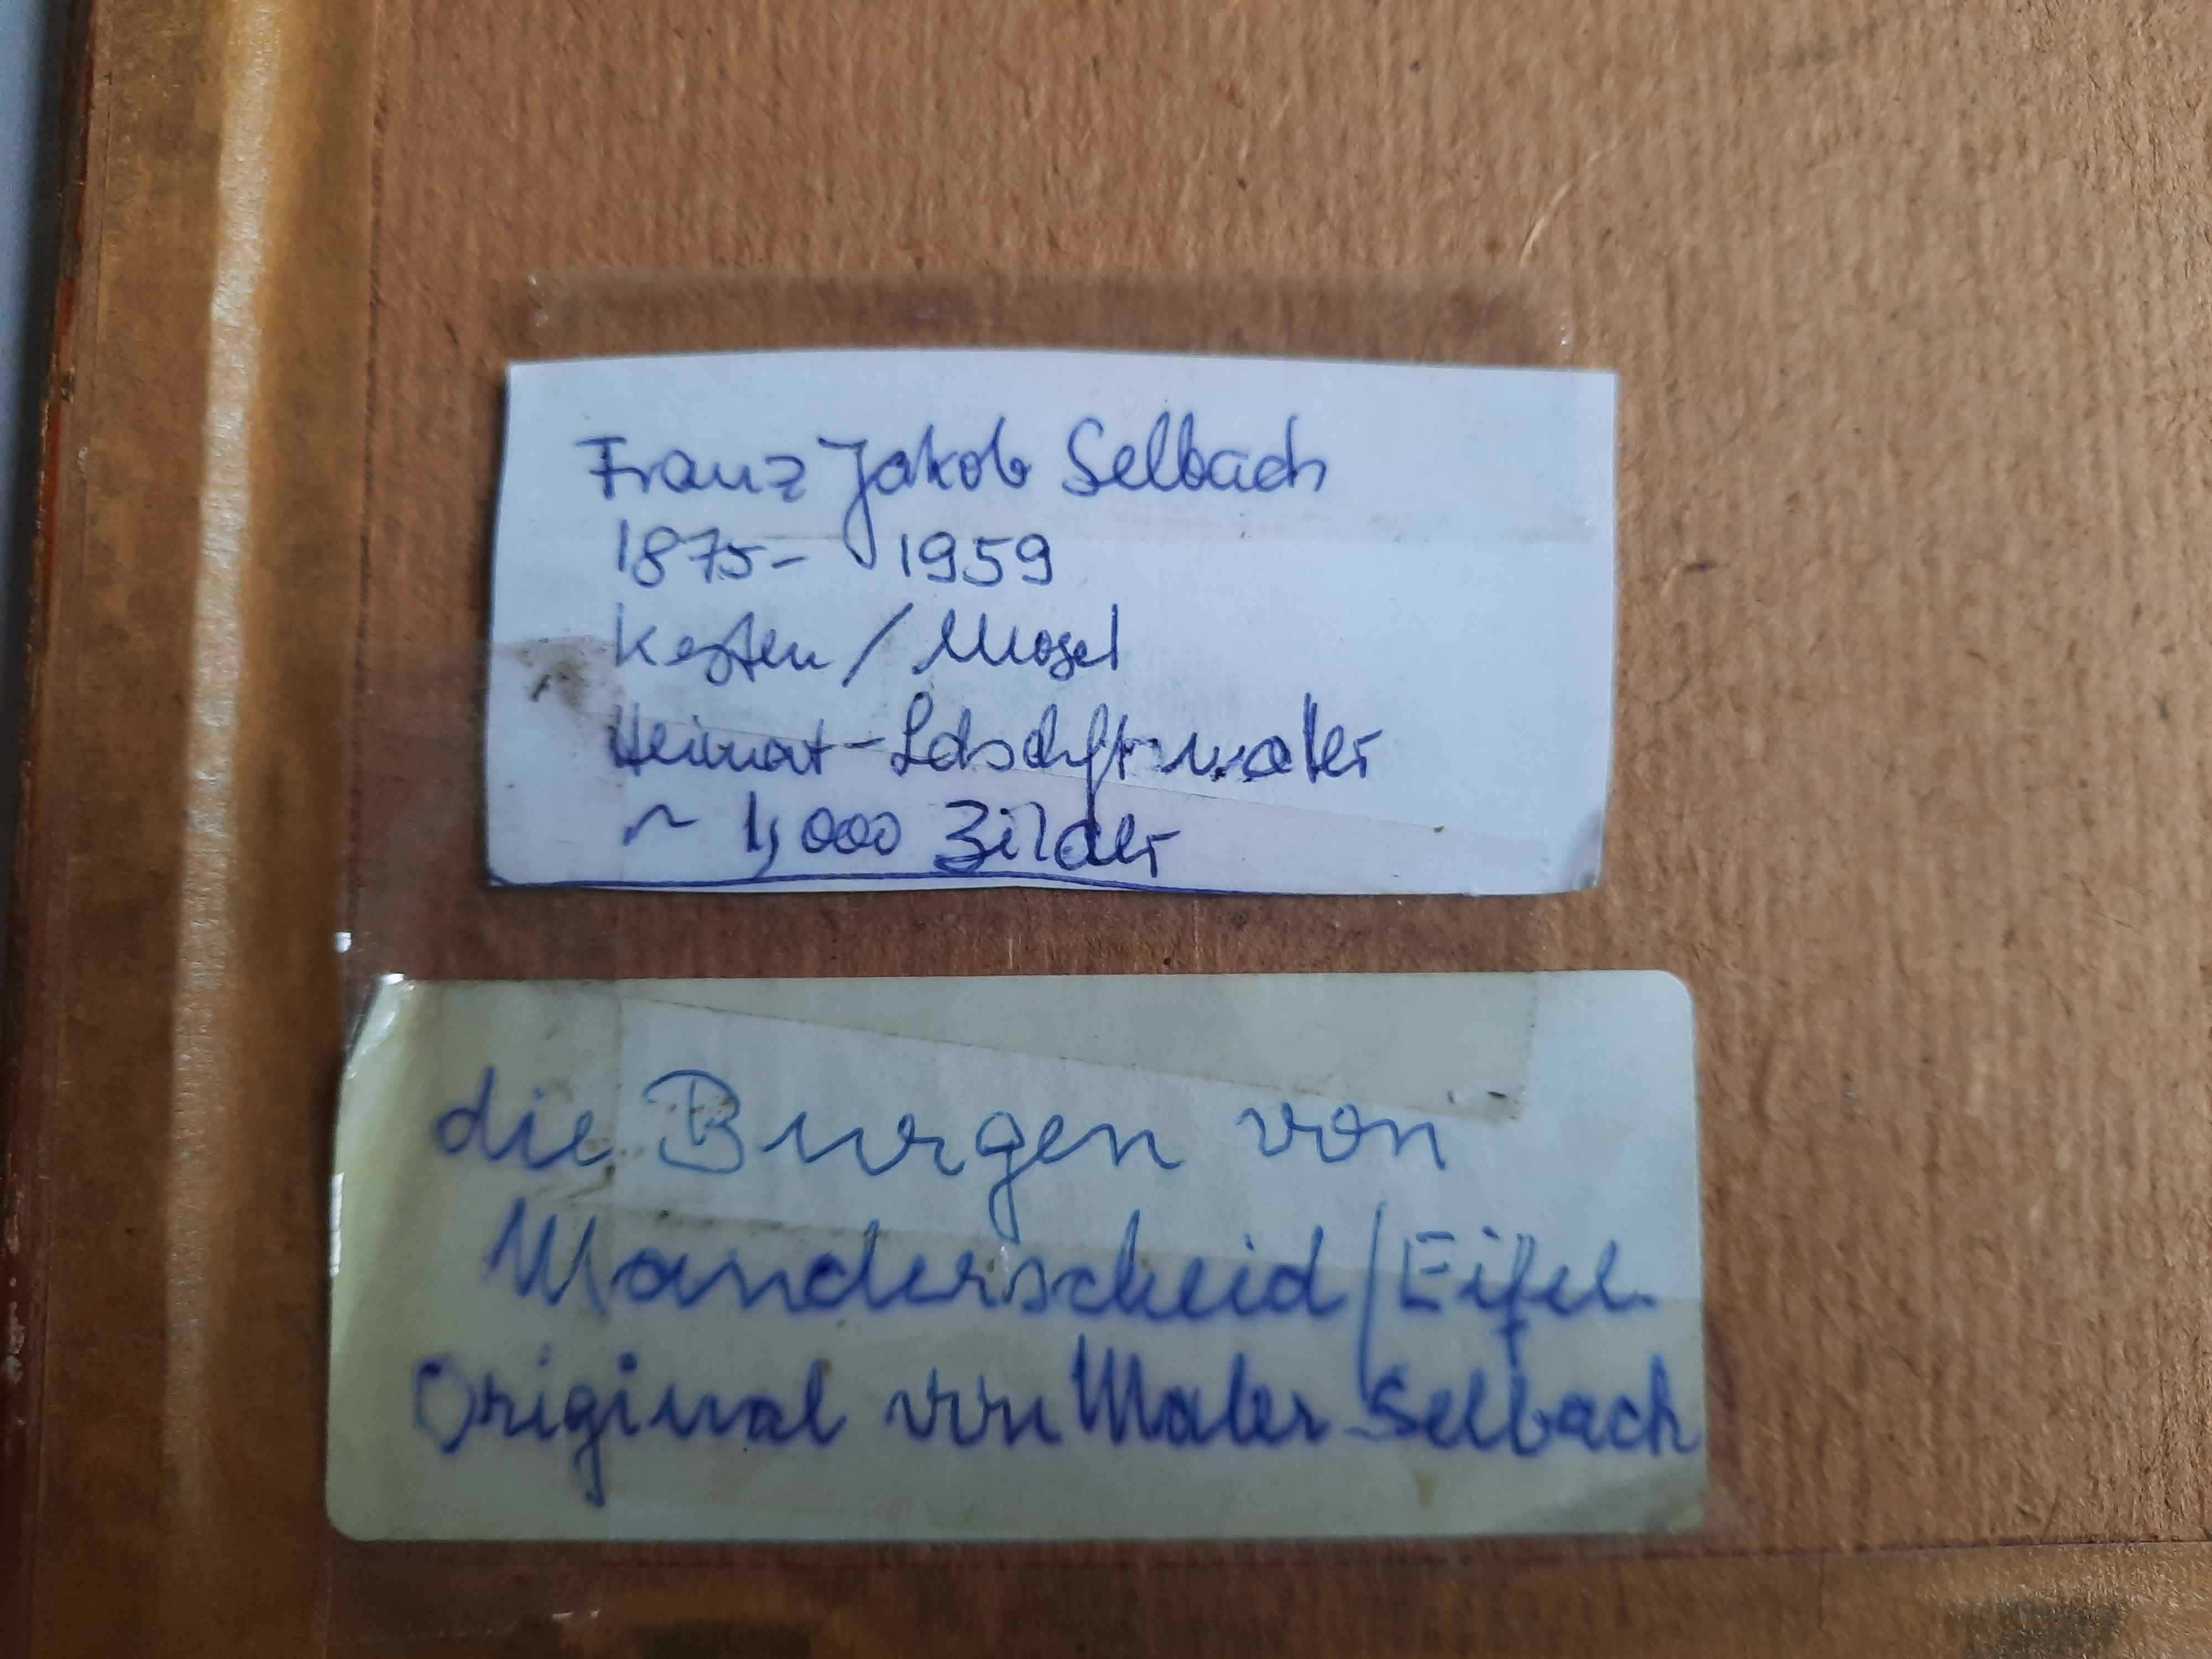 Franz Jakob Selbach
1875- 1959
Kesten / Mosel
Heimat-Ldschftsmaler
~ 1,000 Bilder
die Burgen von
Manderscheid/Eifel.
Original von Maler Selbach